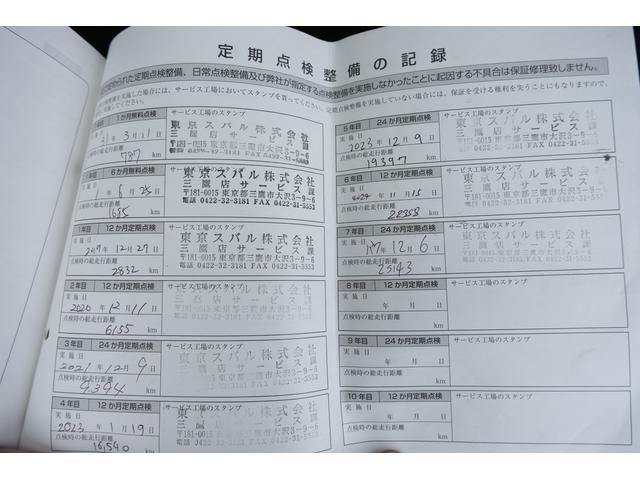 定期点検整備の記録
められた定期点検整備、日常点検整備及び弊社が指定する点検整備を実施しなかったことに起因する不具合は保証修理致しません。
備を実施した場合には、サービス工場においてスタンプを貰ってください。定期点検整備を実施していない場合には、保証を受ける権利を失うことにもなりますので、
1か月無料点検
サービス工場のスタンプ
東京スバル株式会社
三鷹店サービス課
東京都三鷹市大沢3-9-6
電話 0422-32-3181 FAX 0422-31-5553
年 3月11日
点検時の総走行距離
787 km
6か月無料点検
サービス工場のスタンプ
東京スバル株式会社
三鷹店サービス課
〒181-0015 東京都三鷹市大沢3-9-6
電話 0422-32-3181 FAX 0422-31-5553
年 6月25日
点検時の総走行距離
1685 km
1年目 12か月定期点検
サービス工場のスタンプ
東京スバル株式会社
三鷹店サービス課
〒181-0015 東京都三鷹市大沢3-9-6
電話 0422-32-3181 FAX 0422-31-5553
実施日
年12月27日
点検時の総走行距離
2832 km
2年目 12か月定期点検
サービス工場のスタンプ
東京スバル株式会社
三鷹店サービス課
〒181-0015 東京都三鷹市大沢3-9-6
電話 0422-32-3181 FAX 0422-31-5553
実施日
2020年12月11日
点検時の総走行距離
6155 km
3年目 24か月定期点検
サービス工場のスタンプ
東京スバル株式会社
三鷹店サービス課
〒181-0015 東京都三鷹市大沢3-9-6
電話 0422-32-3181 FAX 0422-31-5553
実施日
2021年12月9日
点検時の総走行距離
9,394 km
4年目 12か月定期点検
サービス工場のスタンプ
東京スバル株式会社
三鷹店サービス課
〒181-0015 東京都三鷹市大沢3-9-6
実施日
2023年1月19日
点検時の総走行距離
16,540 km
5年目 24か月定期点検
サービス工場のスタンプ
東京スバル株式会社
三鷹店サービス課
〒181-0015 東京都三鷹市大沢3-9-6
電話 0422-32-3181 FAX 0422-31-5553
実施日
2023年12月9日
点検時の総走行距離
19397 km
6年目 12か月定期点検
サービス工場のスタンプ
東京スバル株式会社
三鷹店サービス課
〒181-0015 東京都三鷹市大沢3-9-6
電話 0422-32-3181 FAX 0422-31-5553
実施日
2024年11月15日
点検時の総走行距離
km
7年目 24か月定期点検
サービス工場のスタンプ
東京スバル株式会社
三鷹店サービス課
〒181-0015 東京都三鷹市大沢3-9-6
電話 0422-32-3181 FAX 0422-31-5553
実施日
年12月6日
点検時の総走行距離
25143 km
8年目 12か月定期点検
サービス工場のスタンプ
実施日
年 月 日
点検時の総走行距離
km
9年目 24か月定期点検
サービス工場のスタンプ
実施日
年 月 日
点検時の総走行距離
km
10年目 12か月定期点検
サービス工場のスタンプ
実施日
年 月 日
点検時の総走行距離
km